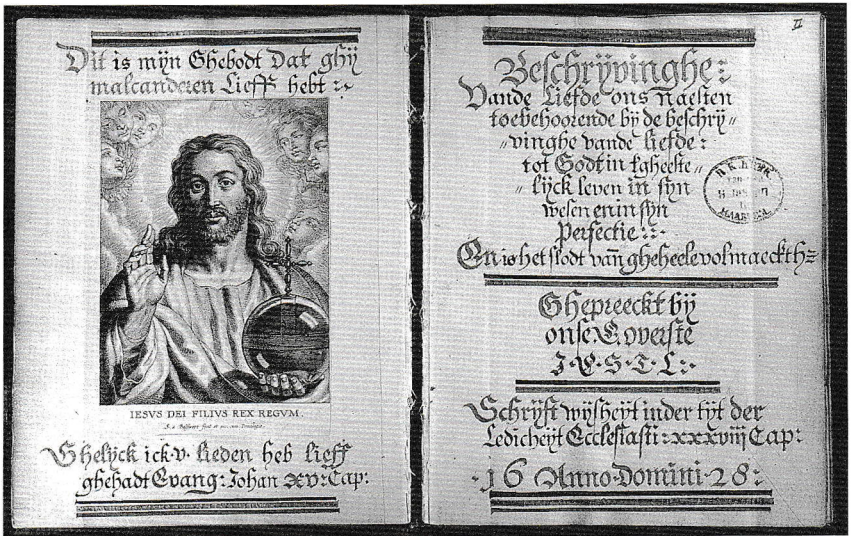 Dit is mijn Ghebodt Dat ghij
malcanderen Lieff hebt :~
IESVS DEI FILIVS REX REGVM.
Ghelijck ick v. lieden heb lieff
ghehadt Evang: Johan xv: Cap:
II
Beschrijvinghe:
Vande Liefde ons Naesten
toebehoorende bij de beschrij„
„vinghe vande liefde:
tot Godt in t'gheeste„
„lijck leven in sijn
wesen en in sijn
Perfectie :~
En is het slodt van gheheele volmaeckth
Ghepreeckt bij
onse E. overste
J·P·S·T·L:·
Schrijft wijsheyt inder tijt der
Ledicheyt Ecclesiasti: xxxviij Cap:
·16 Anno·Domini·28: